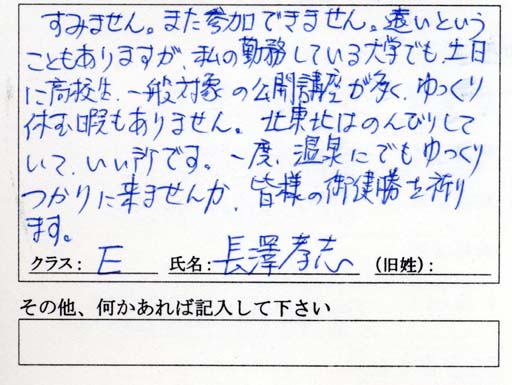 すみません。また参加できません。遠いという
こともありますが、私の勤務している大学でも、土日
に高校生、一般対象の公開講座が多く、ゆっくり
休む暇もありません。北東北はのんびりして
いて、いい所です。一度、温泉にでもゆっくり
つかりに来ませんか、皆様の御健勝を祈り
ます。
クラス: E 氏名: 長澤孝志 (旧姓):
その他、何かあれば記入して下さい